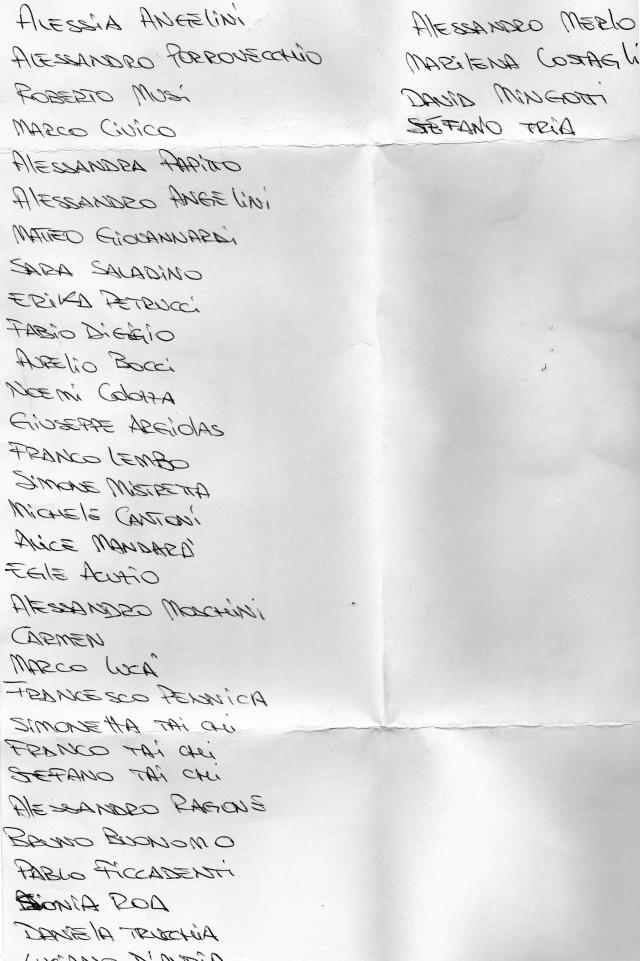 ALESSIA ANGELINI
ALESSANDRO PORROVECCHIO
ROBERTO MUSI
MARCO CIVICO
ALESSANDRA PAPITTO
ALESSANDRO ANGELINI
MATTEO GIOVANNARDI
SARA SALADINO
ERIKA PETRUCCI
FABIO DIGGIO
AURELIO BOCCI
NOEMI
GIUSEPPE ARGIOLAS
FRANCO LEMBO
SIMONE MISTRETTA
MICHELE CANTONI
ALICE MANDARÀ
EGLE ACUTIO
ALESSANDRO MOSCHINI
CARMEN
MARCO LUCÀ
FRANCESCO PENNICA
SIMONETTA TAI CHI
FRANCO TAI CHI
STEFANO TAI CHI
ALESSANDRO RAGONE
BRUNO BUONOMO
PABLO FICCADENTI
SONIA ROA
DANIELA TRUCCHIA
LUCIANO D'AURIA
ALESSANDRO MERLO
MARILENA COSTAGLI
DAVID MINGOTTI
STEFANO TRIA